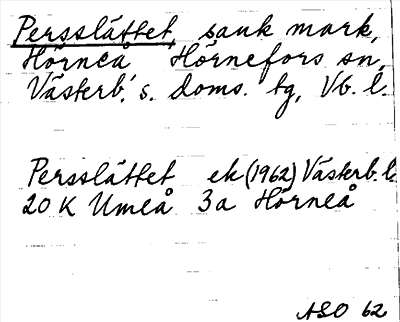 Persslåttet, sank mark,
Hörneå Hörnefors sn,
Västerb:s. doms. tg, Vb. l.
Persslåttet ek (1962) Västerb. l.
20 K Umeå 3a Hörneå
ASO 62